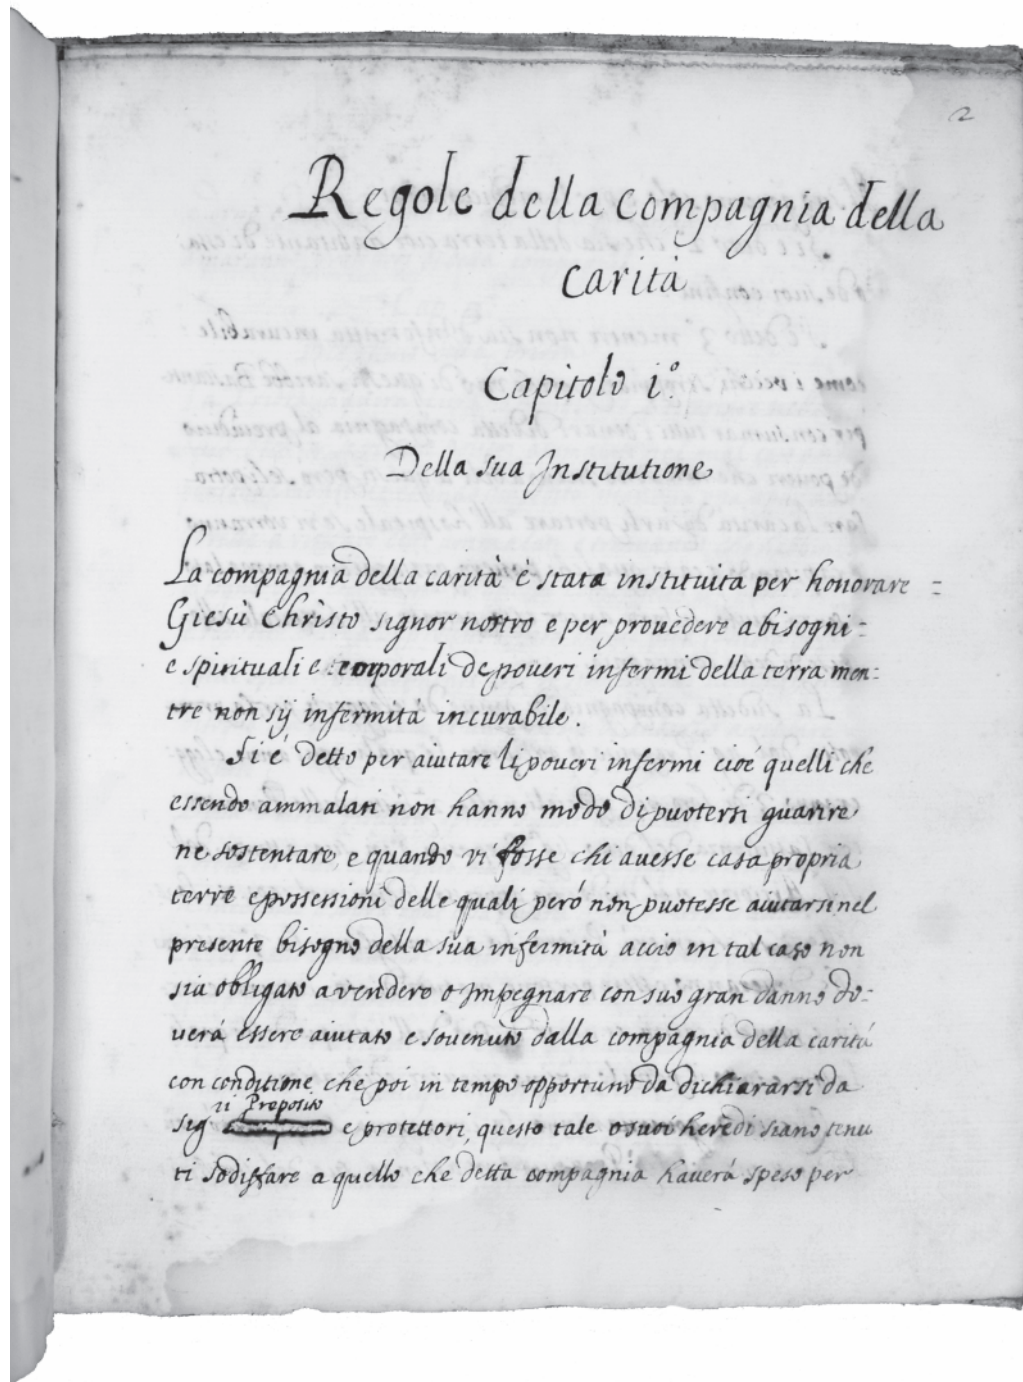 2
Regole della compagnia della
carità
Capitolo i.º
Della sua Institutione
La compagnia della carità è stata instituita per honorare =
Giesù Christo signor nostro e per prouedere a bisogni =
e spirituali e corporali de poueri infermi della terra men=
tre non sij infermità incurabile.
Si é detto per aiutare li poueri infermi cioé quelli che
essendo ammalati non hanno modo di puotersi guarire
ne sostentare, e quando vi fosse chi auesse casa propria
terre e possessioni delle quali peró non puotesse aiutarsi nel
presente bisogno della sua infermità accio in tal caso non
sia obligato a vendere o impegnare con suo gran danno do=
uerá essere aiutato e souenuto dalla compagnia della caritá
con conditione che poi in tempo opportuno da dichiararsi da
ri Proposito
sig e protettori, questo tale o suoi heredi siano tenu
ti sodisfare a quello che detta compagnia hauerá speso per